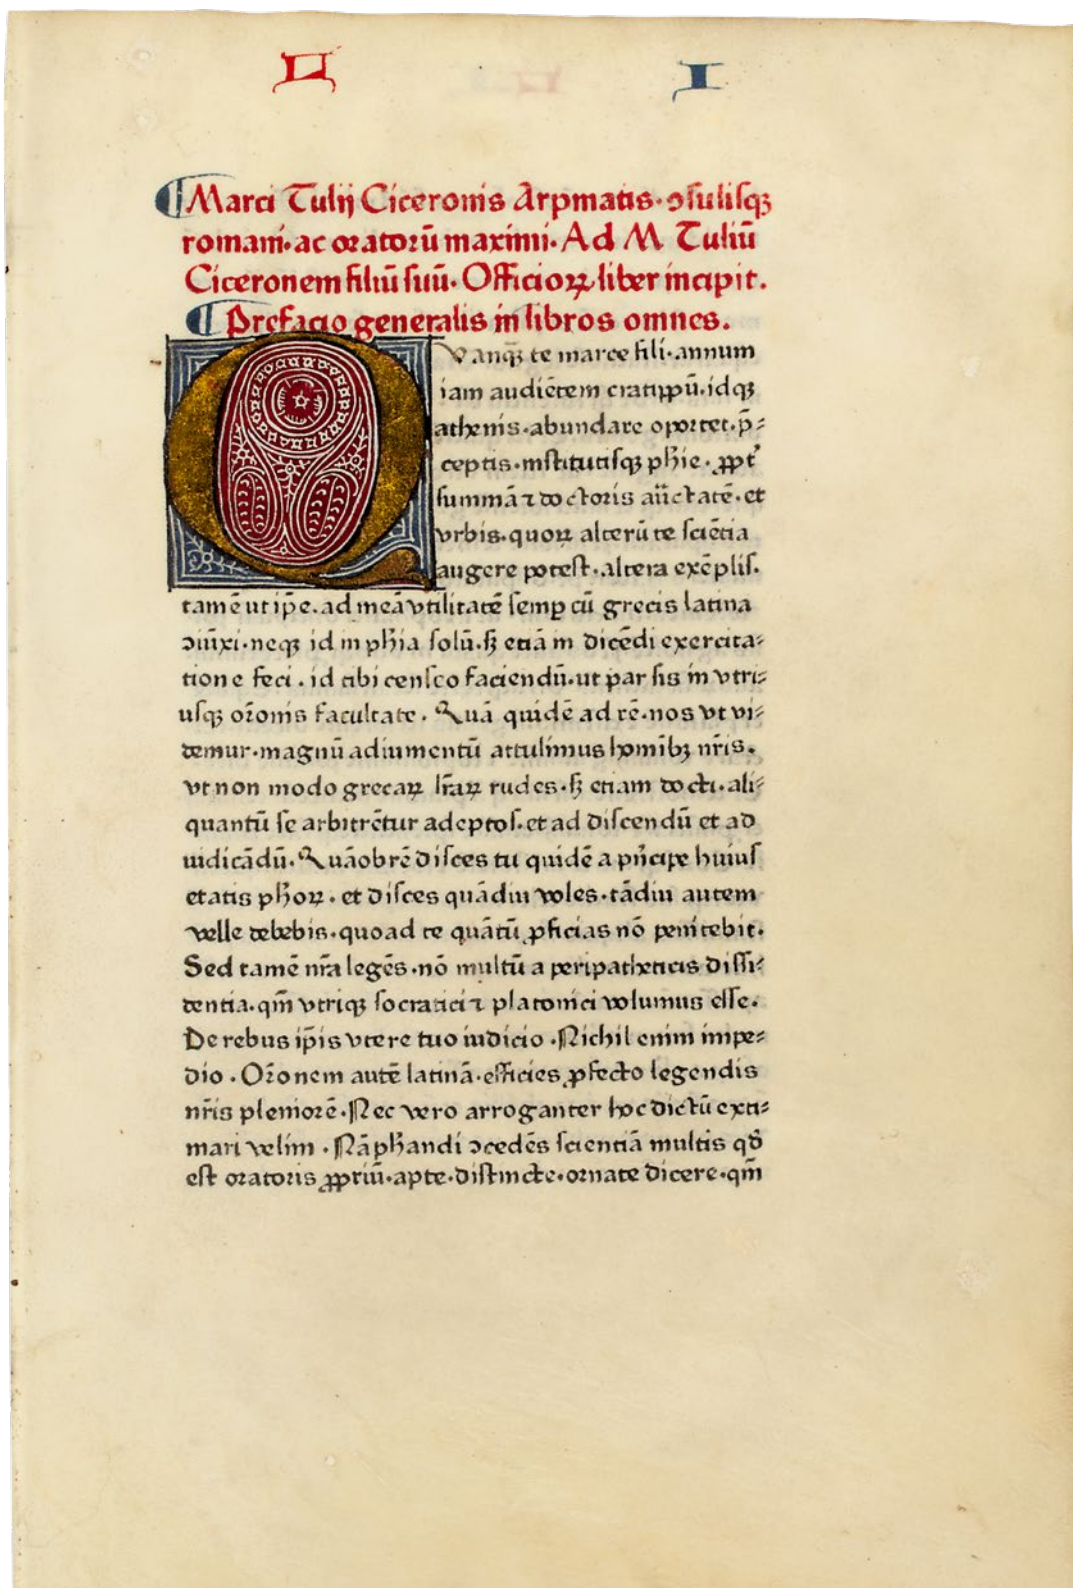 L I
Marci Tulij Ciceronis Arpinatis· ↄsulisqꝫ
romani·ac oratorū maximi· Ad M Tuliū
Ciceronem filiū suū· Officioꝝ liber incipit.
Prefacio generalis in libros omnes.
Quanqꝫ te marce fili·annum
iam audiētem cratippū·idqꝫ
athenis·abundare oportet·p̄⸗
ceptis·institutisqꝫ ph̄ie·ꝓpt̄
summā ⁊ doctoris auc̄tatē·et
vrbis·quoꝝ alterū te sciētia
augere potest·altera exēplis.
tamē ut ip̄e·ad meā vtilitatē semꝑ cū grecis latina
ↄiūxi·neqꝫ id in ph̄ia solū·sꝫ etiā in dicēdi exercita⸗
tione feci·id tibi censeo faciendū·ut par sis in vtri⸗
usqꝫ or̄onis facultate· Quā quidē ad rē·nos vt vi⸗
demur·magnū adiumentū attulimus homībꝫ nr̄is·
vt non modo grecaꝝ lr̄aꝝ rudes·sꝫ etiam docti·ali⸗
quantū se arbitrētur adeptos·et ad discendū et ad
iudicādū· Quāobrē disces tu quidē a pn̄cipe huius
etatis ph̄oꝝ·et disces quādiu voles·tādiu autem
velle debebis·quoad te quātū ꝓficias nō penitebit·
Sed tamē nr̄a legēs·nō multū a peripatheticis dissi⸗
dentia·qm̄ vtriqꝫ socratici ⁊ platonici volumus esse·
De rebus ip̄is vtere tuo iudicio·Nichil enim impe⸗
dio·Or̄onem autē latinā·efficies ꝓfecto legendis
nr̄is pleniorē·Nec vero arroganter hoc dictū exti⸗
mari velim·Nā ph̄andi ↄcedēs scientiā multis qd̄
est oratoris ꝓpriū·apte·distincte·ornate dicere·qm̄